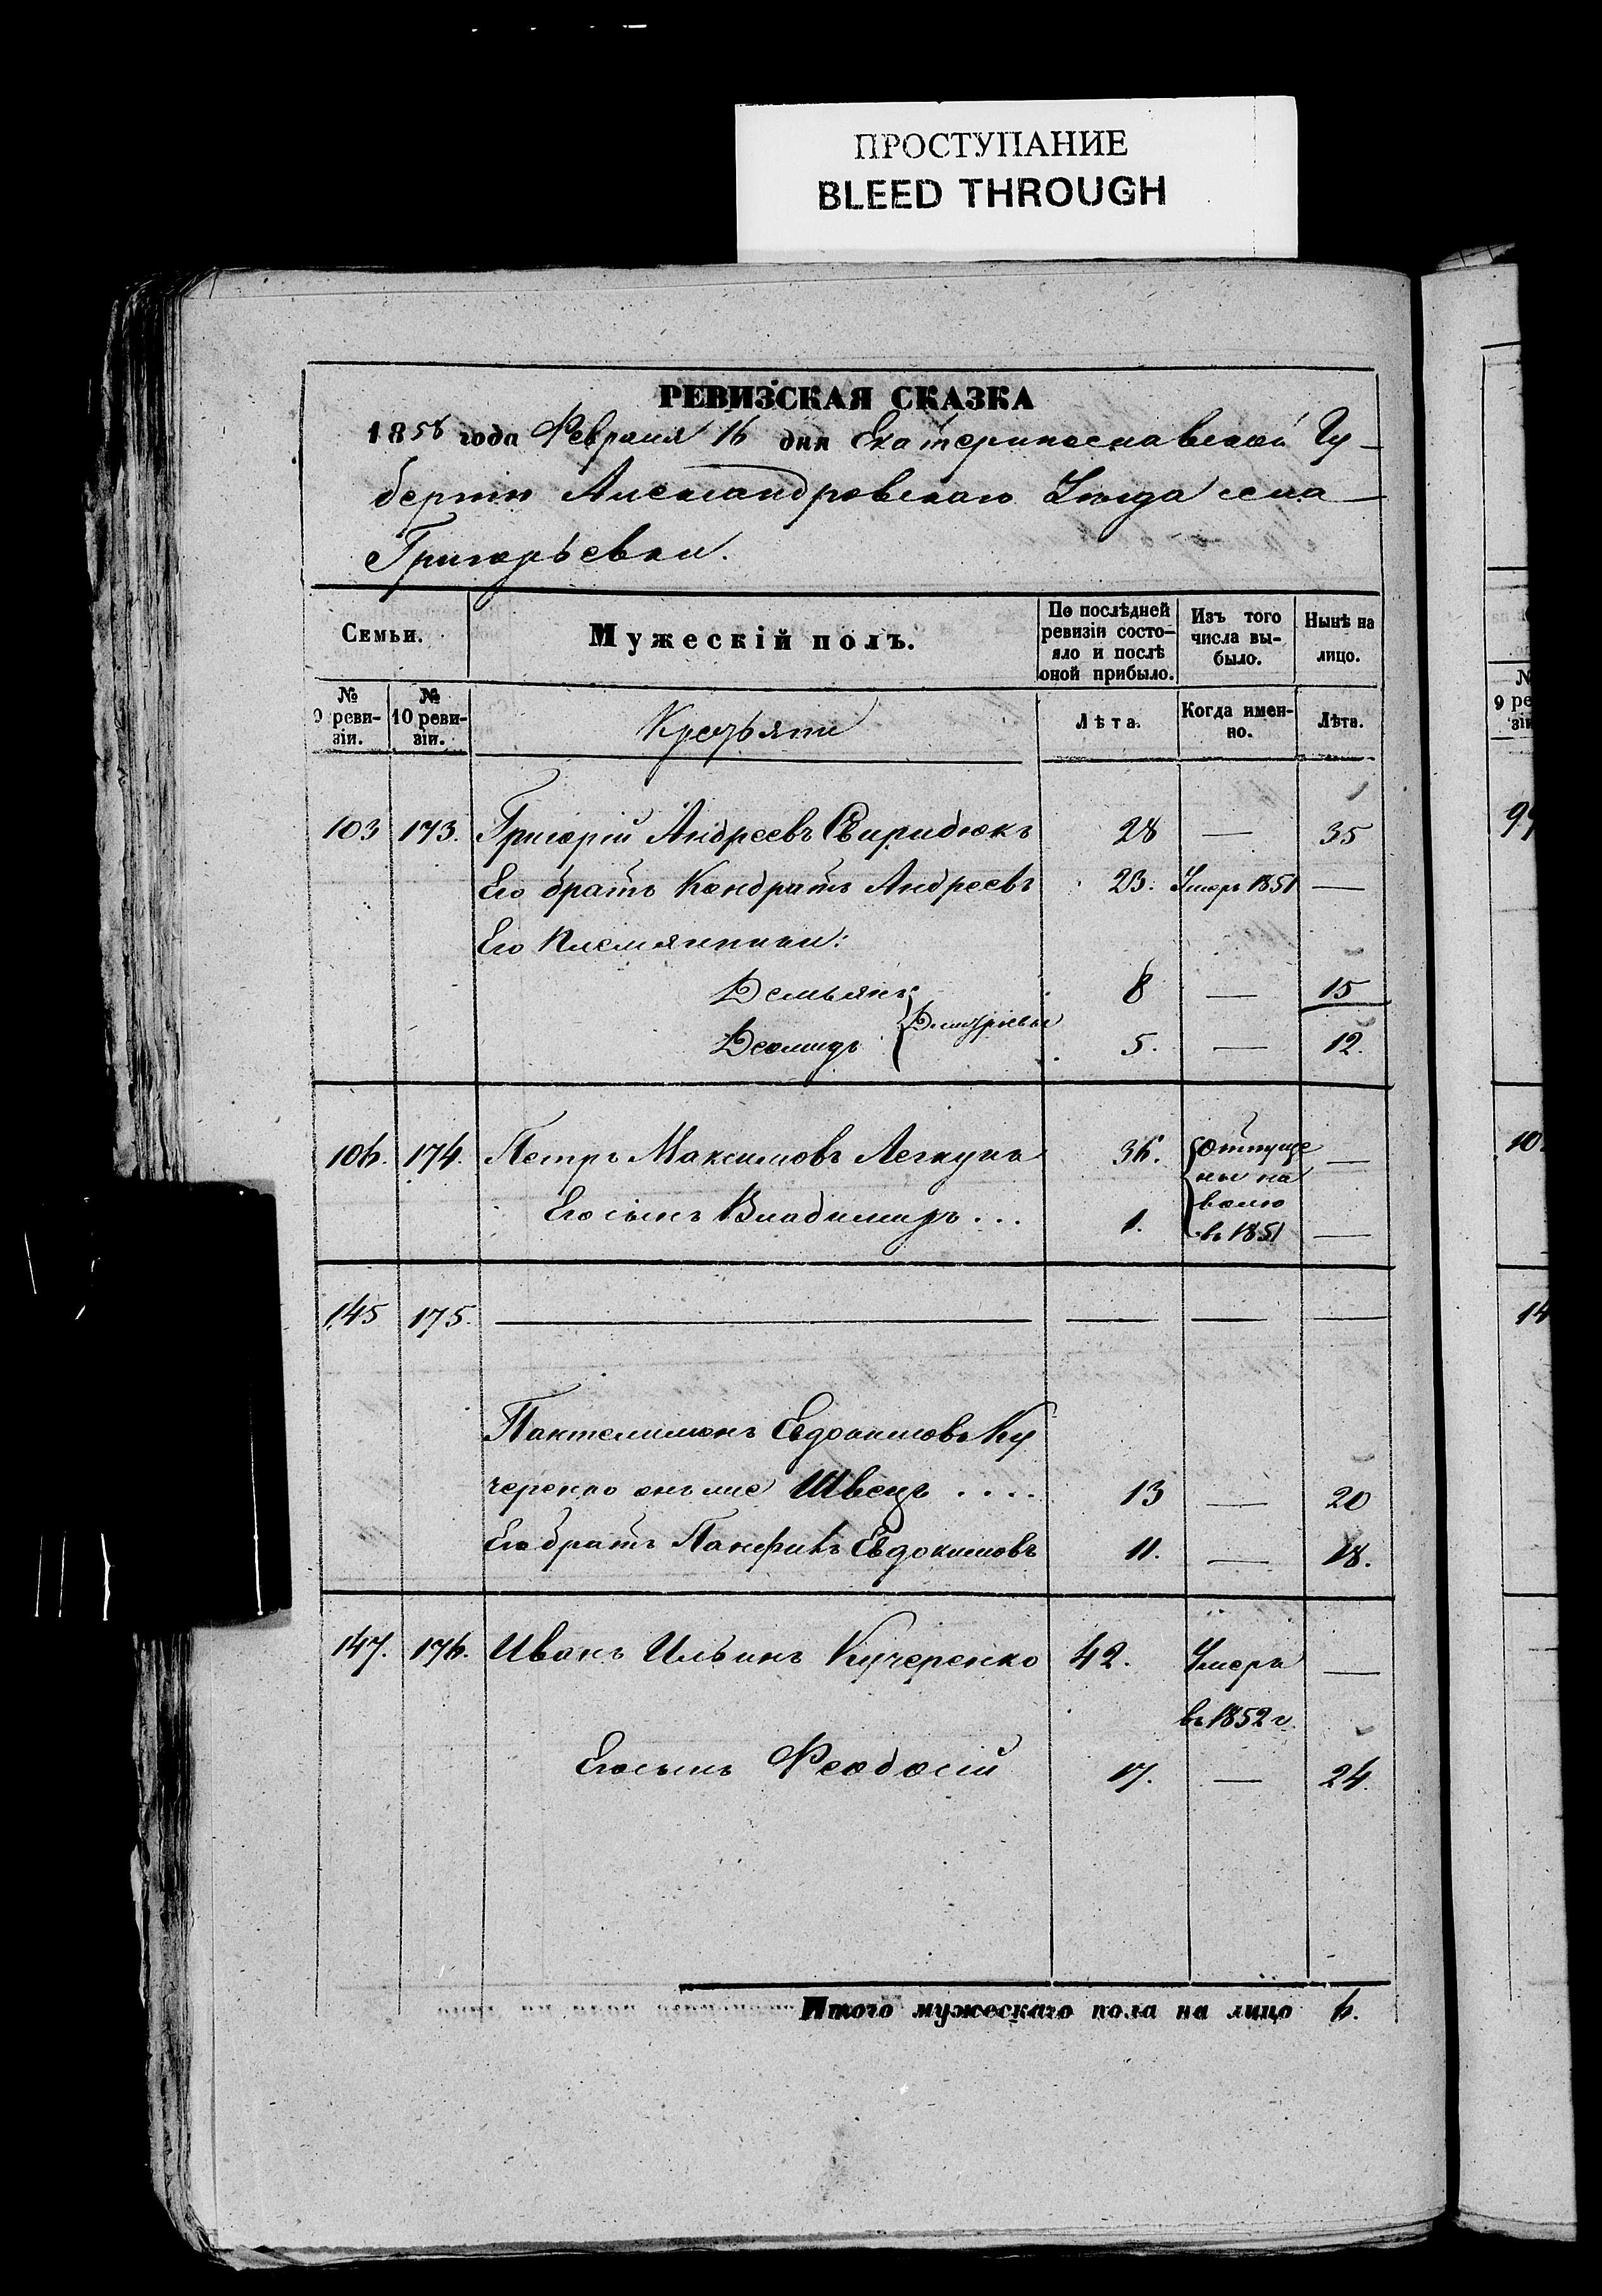 ПРОСТУПАНИЕ
BLEED THROUGH
РЕВИЗСКАЯ СКАЗКА
1858 года Февраля 16 дня Екатеринославской Гу-
берніи Александровскаго Уезда села
Григорьевки.
Семьи.
Мужескій полъ.
По послѣдней ревизіи состо-
яло и послѣ
оной прибыло.
Изъ того
числа вы-
было.
Нынѣ на
лицо.
№ 9 реви-
зіи.
№ 10 реви-
зіи.
Крестьяне
Лѣта.
Когда имен-
но.
Лѣта.
103 173. Григорій Андреевъ Свиридюкъ 28 — 35
Его братъ Кондратъ Андреевъ 23. Умеръ 1851 —
Его племянники:
Демьянъ 8 — 15
Дмитріевы
Деомидъ 5. — 12.
106. 174. Петръ Максимовъ Легкунъ 36. Отпуще —
ны на
волю
Его сынъ Владимиръ ... 1. въ 1851 —
145 175. — — — —
Пантелимонъ Евдокимовъ Ку
черенко онъ же Швецъ .... 13 — 20
Его братъ Панфилъ Евдокимовъ 11. — 18.
147. 176. Иванъ Ильинъ Кучеренко 42. Умеръ —
въ 1852 г.
Его сынъ Феодосій 17. — 24.
Итого мужескаго пола на лицо 6.
9 ре
зі
99
10
14